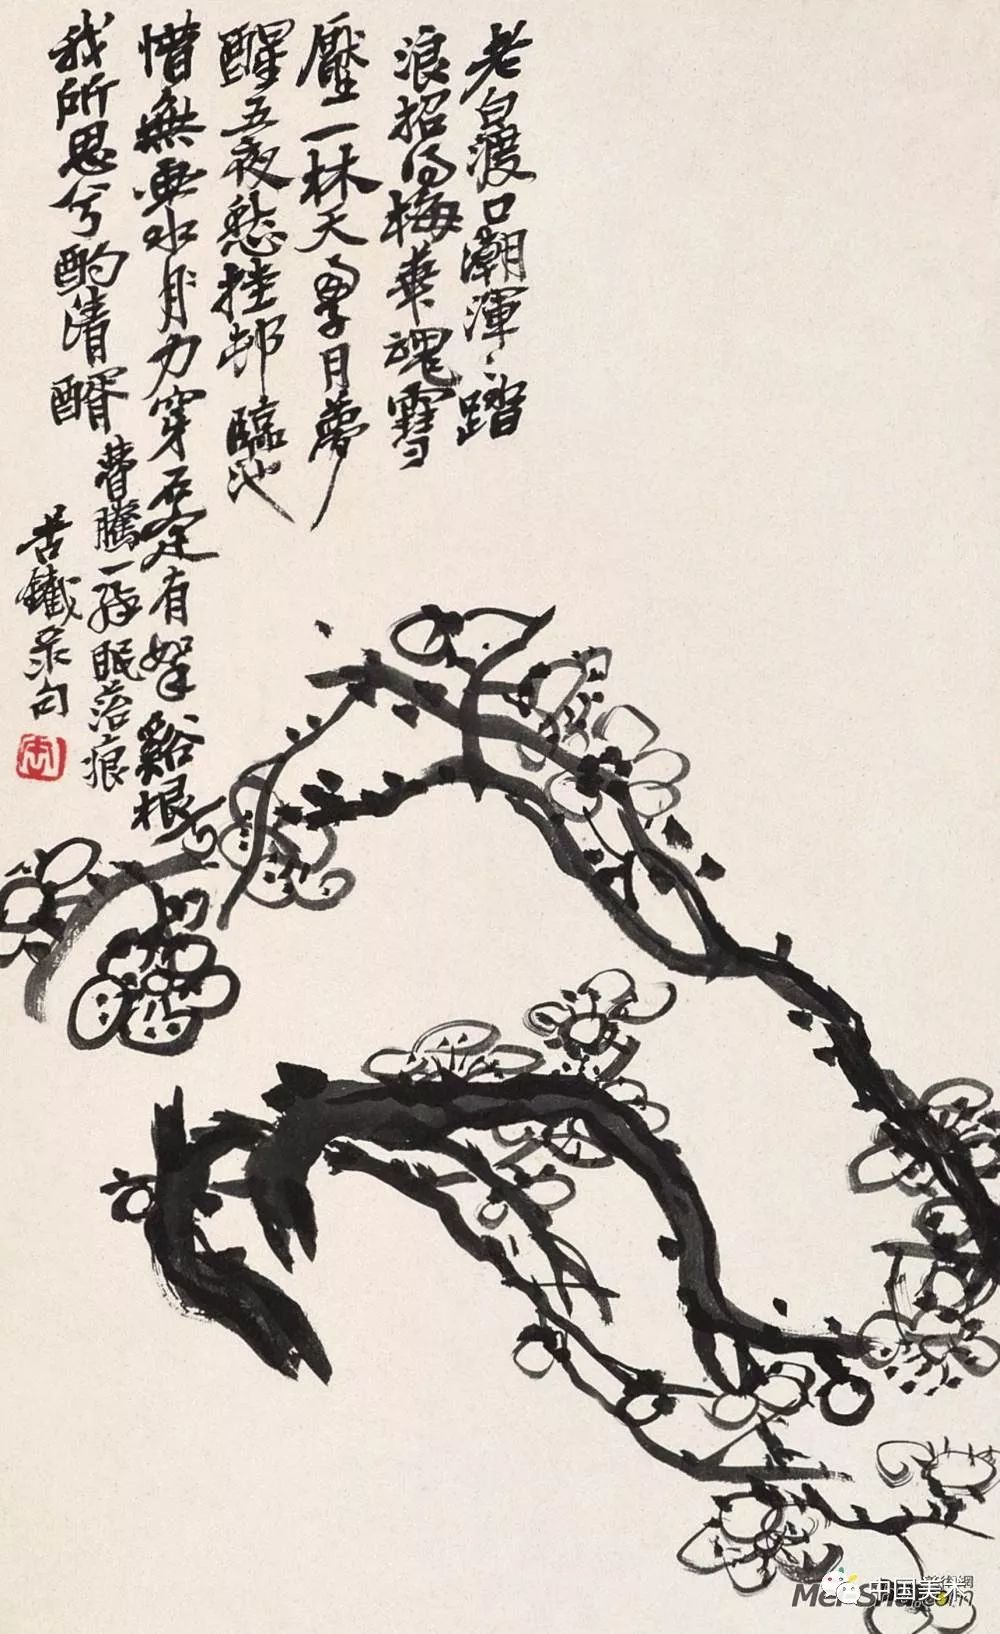 老白渡口潮渾渾踏
浪招得梅華魂雪
壓一林天雩月夢
醒五夜愁挂邨臨池
惜無垂水月力穿石定有拏谿根
我所思兮酌清醑瞢騰一醉眠苔痕
苦鐵录句
中国美术